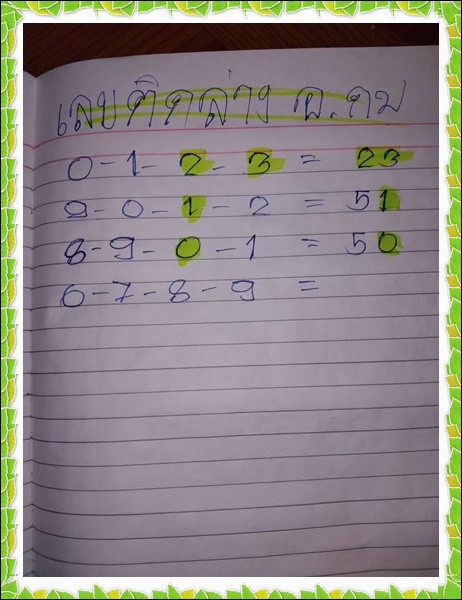 เลขติดล่าง อ.คม
0-1-2-3 = 23
9-0-1-2 = 51
8-9-0-1 = 50
6-7-8-9 =